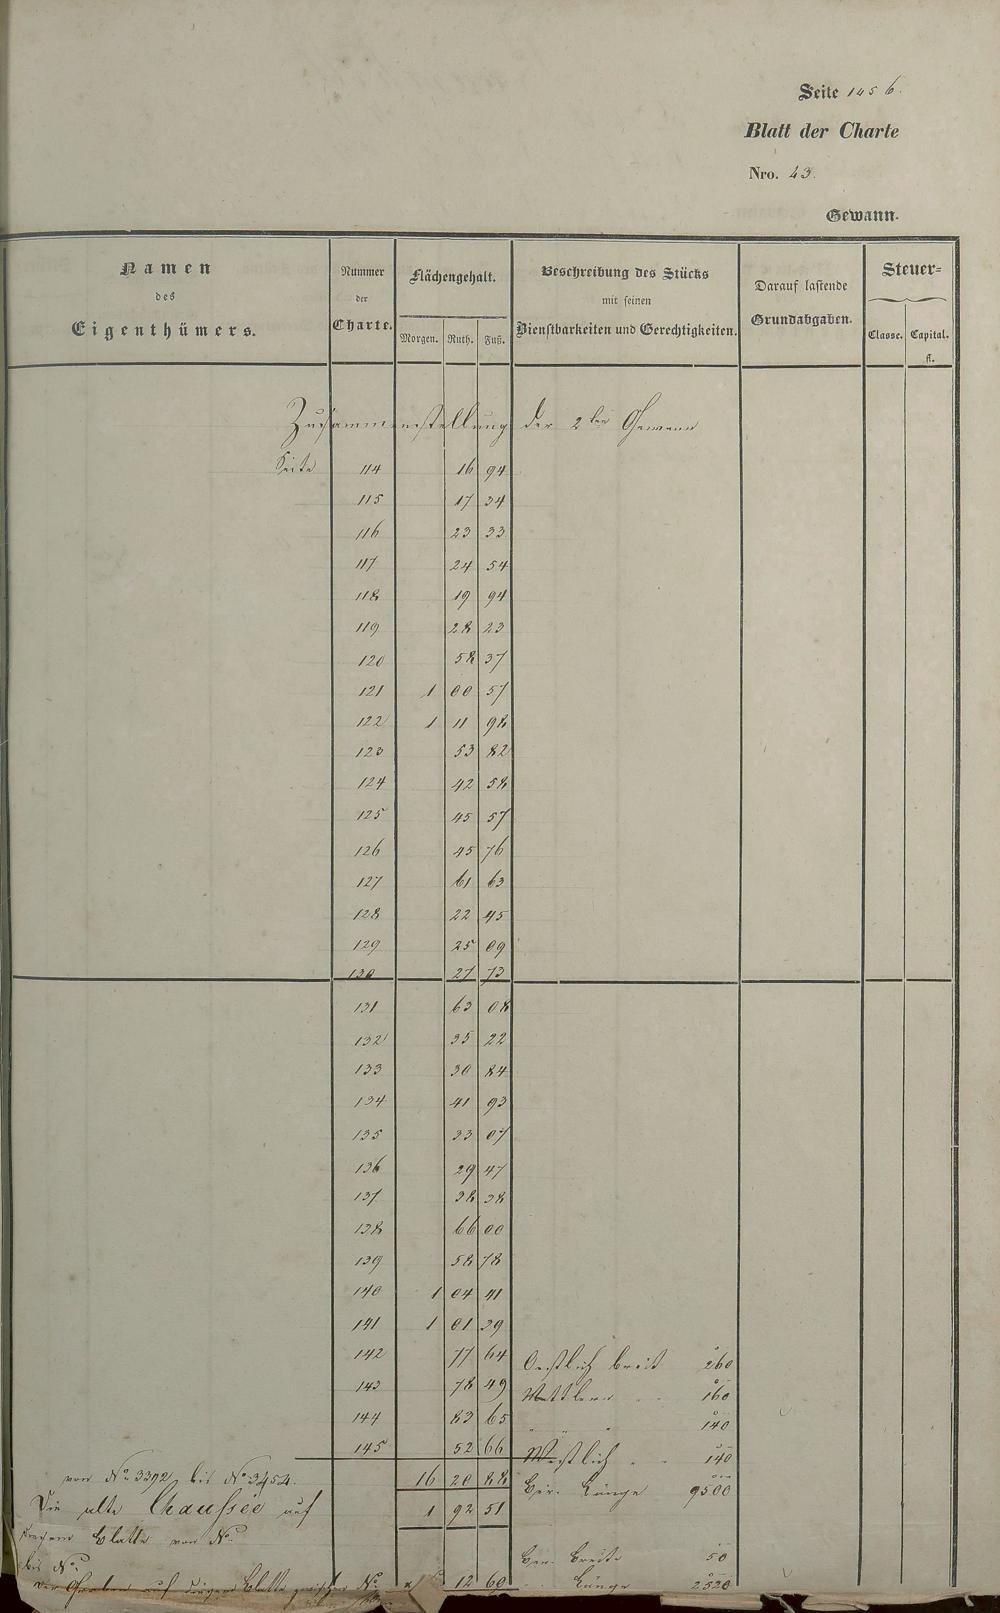 Seite 145 b.
Blatt der Charte
Nro. 43.
Gewann.
Namen des Eigenthümers.
Nummer der Charte.
Flächengehalt.
Morgen. Ruth. Fuß.
Beschreibung des Stücks mit seinen Dienstbarkeiten und Gerechtigkeiten.
Darauf lastende Grundabgaben.
Steuer-
Classe. Capital. fl.
Zusammenstellung der 2ten Gewann
Seite 114 16 94
115 17 34
116 23 33
117 24 54
118 19 94
119 28 23
120 58 37
121 1 00 57
122 1 11 98
123 53 82
124 42 58
125 45 57
126 45 76
127 61 63
128 22 45
129 25 09
130 27 73
131 63 08
132 35 22
133 30 84
134 41 93
135 33 07
136 29 47
137 38 38
138 66 00
139 58 78
140 1 04 41
141 1 01 39
142 77 64 Oestlich breit 260
143 78 49 Mittlere 160
144 83 65 " " " 140
145 52 66 Westlich 140
von No. 3392 bis No. 3454. 16 20 88 Ber. Länge 9500
Die alte Chaussee auf 1 92 51
diesem Blatte von No.
bis No. Ber. Breite 50
Der Graben auf diesem Blatte zwischen No. 12 60 Länge 2520